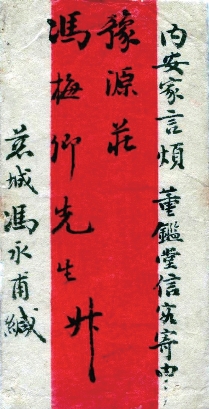 内安家言煩 董鑑堂信客寄申
豫源莊
馮梅卿先生升
慈城馮永甫緘